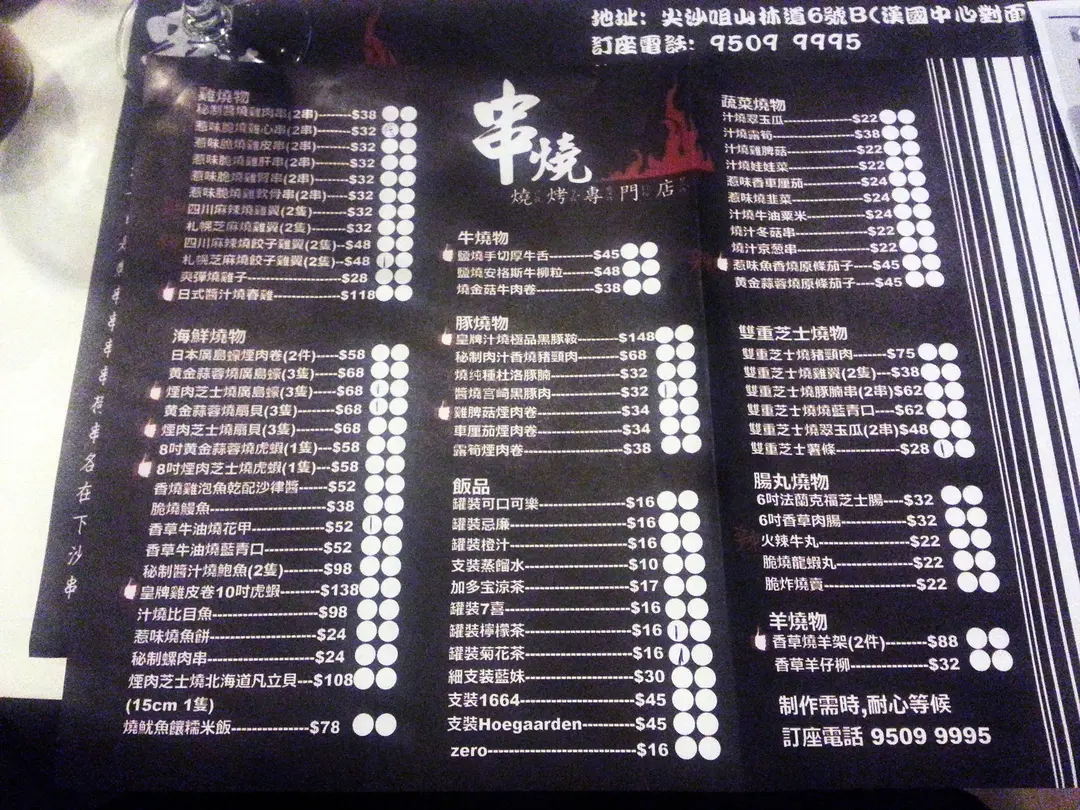 地址: 尖沙咀山林道6號B(漢國中心對面
訂座電話: 9509 9995
串燒
燒烤專門店
雞燒物
秘制醬燒雞肉串(2串)------$38
惹味脆燒雞心串(2串)------$32
惹味脆燒雞皮串(2串)------$32
惹味脆燒雞肝串(2串)------$32
惹味脆燒雞腎串(2串)------$32
惹味脆燒雞軟骨串(2串)----$32
四川麻辣燒雞翼(2隻)------$32
札幌芝麻燒雞翼(2隻)------$32
四川麻辣燒餃子雞翼(2隻)--$48
札幌芝麻燒餃子雞翼(2隻)--$48
爽彈燒雞子---------------$28
日式醬汁燒春雞-----------$118
海鮮燒物
日本廣島蠔煙肉卷(2件)----$58
黄金蒜蓉燒廣島蠔(3隻)----$68
煙肉芝士燒廣島蠔(3隻)----$68
黄金蒜蓉燒扇貝(3隻)------$68
煙肉芝士燒扇貝(3隻)------$68
8吋黄金蒜蓉燒虎蝦(1隻)---$58
8吋煙肉芝士燒虎蝦(1隻)---$58
香燒雞泡魚乾配沙律醬-----$52
脆燒鰻魚-----------------$38
香草牛油燒花甲-----------$52
香草牛油燒藍青口---------$52
秘制醬汁燒鮑魚(2隻)------$98
皇牌雞皮卷10吋虎蝦-------$138
汁燒比目魚---------------$98
惹味燒魚餅---------------$24
秘制螺肉串---------------$24
煙肉芝士燒北海道凡立貝---$108
(15cm 1隻)
燒魷魚釀糯米飯-----------$78
牛燒物
鹽燒手切厚牛舌---------$45
鹽燒安格斯牛柳粒-------$48
燒金菇牛肉卷-----------$38
豚燒物
皇牌汁燒極品黑豚鞍-----$148
秘制肉汁香燒豬頸肉-----$68
燒纯種杜洛豚腩---------$32
醬燒宮崎黑豚肉---------$32
雞脾菇煙肉卷-----------$34
車厘茄煙肉卷-----------$34
露筍煙肉卷-------------$38
飯品
罐裝可口可樂-----------$16
罐裝忌廉---------------$16
罐裝橙汁---------------$16
支裝蒸餾水-------------$10
加多宝涼茶-------------$17
罐裝7喜----------------$16
罐裝檸檬茶-------------$16
罐裝菊花茶-------------$16
細支裝藍妹-------------$30
支裝1664---------------$45
支裝Hoegaarden---------$45
zero-------------------$16
蔬菜燒物
汁燒翠玉瓜-----------$22
汁燒露筍-------------$38
汁燒雞脾菇-----------$22
汁燒娃娃菜-----------$22
惹味香車厘茄---------$24
惹味燒韭菜-----------$24
汁燒牛油粟米---------$24
燒汁冬菇串-----------$22
燒汁京葱串-----------$22
惹味魚香燒原條茄子---$45
黄金蒜蓉燒原條茄子---$45
雙重芝士燒物
雙重芝士燒豬頸肉-----$75
雙重芝士燒雞翼(2隻)--$38
雙重芝士燒豚腩串(2串)$62
雙重芝士燒燒藍青口---$62
雙重芝士燒翠玉瓜(2串)$48
雙重芝士薯條---------$28
腸丸燒物
6吋法蘭克福芝士腸----$32
6吋香草肉腸----------$32
火辣牛丸-------------$22
脆燒龍蝦丸-----------$22
脆炸燒賣-------------$22
羊燒物
香草燒羊架(2件)------$88
香草羊仔柳-----------$32
制作需時,耐心等候
訂座電話 9509 9995